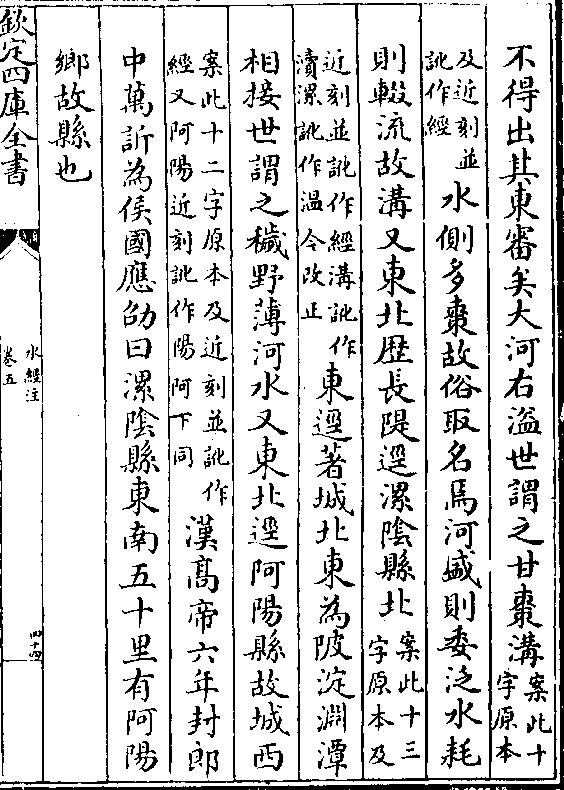 不得出其東審矣大河右溢世謂之甘棗溝案此十字原本
及近刻並訛作經水側多棗故俗取名焉河盛則委泛水耗
則輟流故溝又東北歴長隄逕漯隂縣北案此十三字原本及
近刻並訛作經溝訛作瀆漯訛作温今改正東逕著城北東為陂淀淵潭
相接世謂之穢野薄河水又東北逕阿陽縣故城西
案此十二字原本及近刻並訛作經又阿陽近刻訛作陽阿下同漢髙帝六年封郎
中萬訢為侯國應劭曰漯隂縣東南五十里有阿陽
鄉故縣也
欽定四庫全書
水經注
卷五
四十四